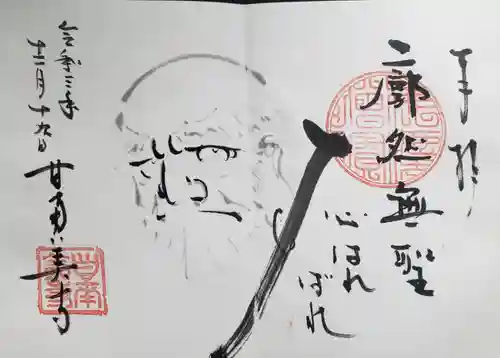 奉拝
廓然無聖
心はれ
ばれ
令和三年
十二月十九日
甘南美寺